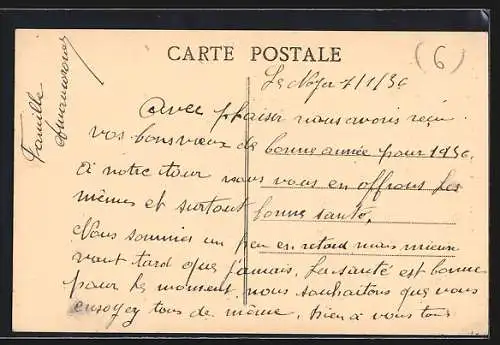 CARTE POSTALE
(6)
Le Noyer 7/1/36
Avec plaisir nous avons reçu
vos bons vœux de bonne année pour 1936.
A notre tour nous vous en offrons les
mêmes et surtout bonne santé,
Nous sommes un peu en retard mais mieux
vaut tard que jamais. La santé est bonne
pour le moment, nous souhaitons que vous
ensoyez tous de même, bien à vous tous
Famille